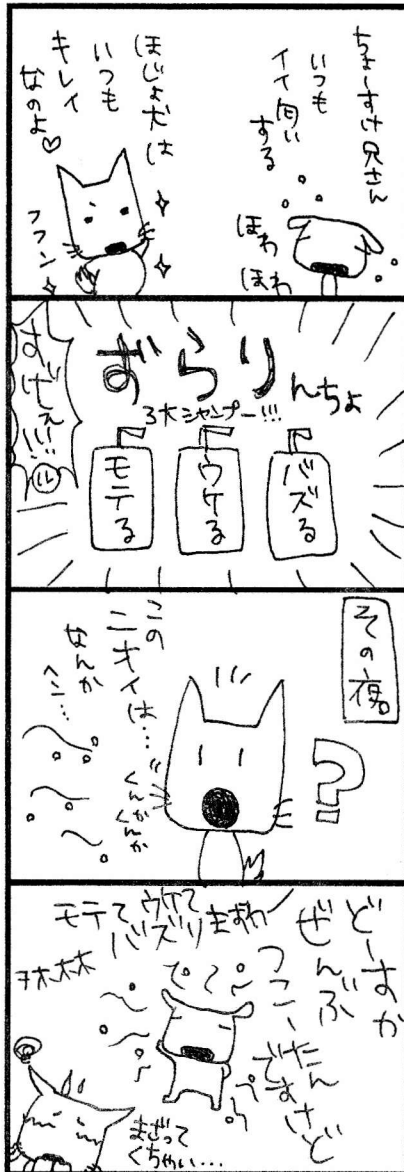 ちょーすけ兄さん
いつも
イイ匂い
する
ほわ
ほわ
ほじょ犬は
いつも
キレイ
なのよ♡
フフン
ずらりんちょ
3大シャンプー!!!
バズる
ウケる
モテる
すげぇ!!!
その夜。
?
この
ニオイは…
なんか
ヘン…
くんか
くんか
どーすか
ぜんぶ
つこーたん
ですけど
モテて ウケて
バズりますわー
まざって
くちゃい…